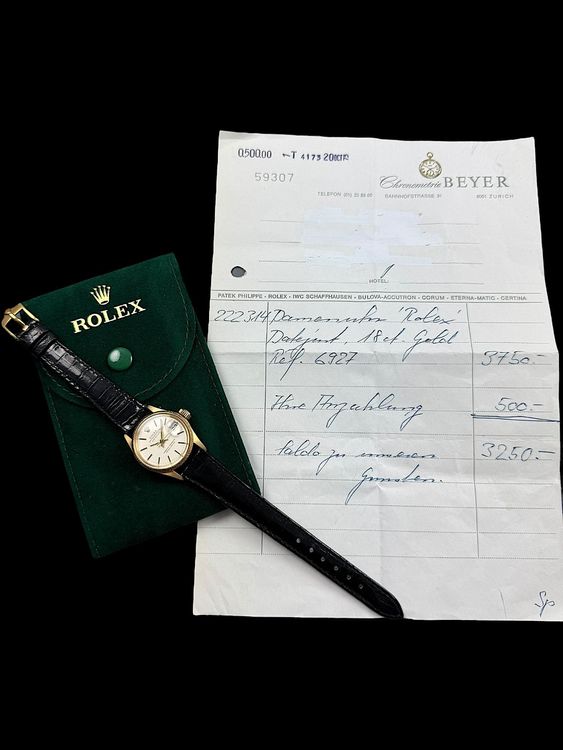 0,500.00 ~T 4173 20
59307
Chronometrie BEYER
TELEFON (01) 25 89 60 BAHNHOFSTRASSE 31 8001 ZÜRICH
HOTEL:
PATEK PHILIPPE - ROLEX - IWC SCHAFFHAUSEN - BULOVA-ACCUTRON - CORUM - ETERNA-MATIC - CERTINA
222314 Damenuhr 'Rolex'
Datejust, 18 ct. Gold
Réf. 6927 3750.-
Ihre Anzahlung 500.-
Saldo zu unseren 3250.-
Gunsten.
Sp
ROLEX